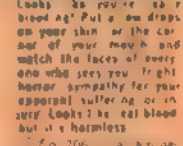 Looks as you're
bleeding. Put a few drops
on your skin or the cor
ner of your mouth and
watch the faces of every
one who sees you
horror sympathy for your
apparent suffering or in
jury Looks like real blood
but it's harmless